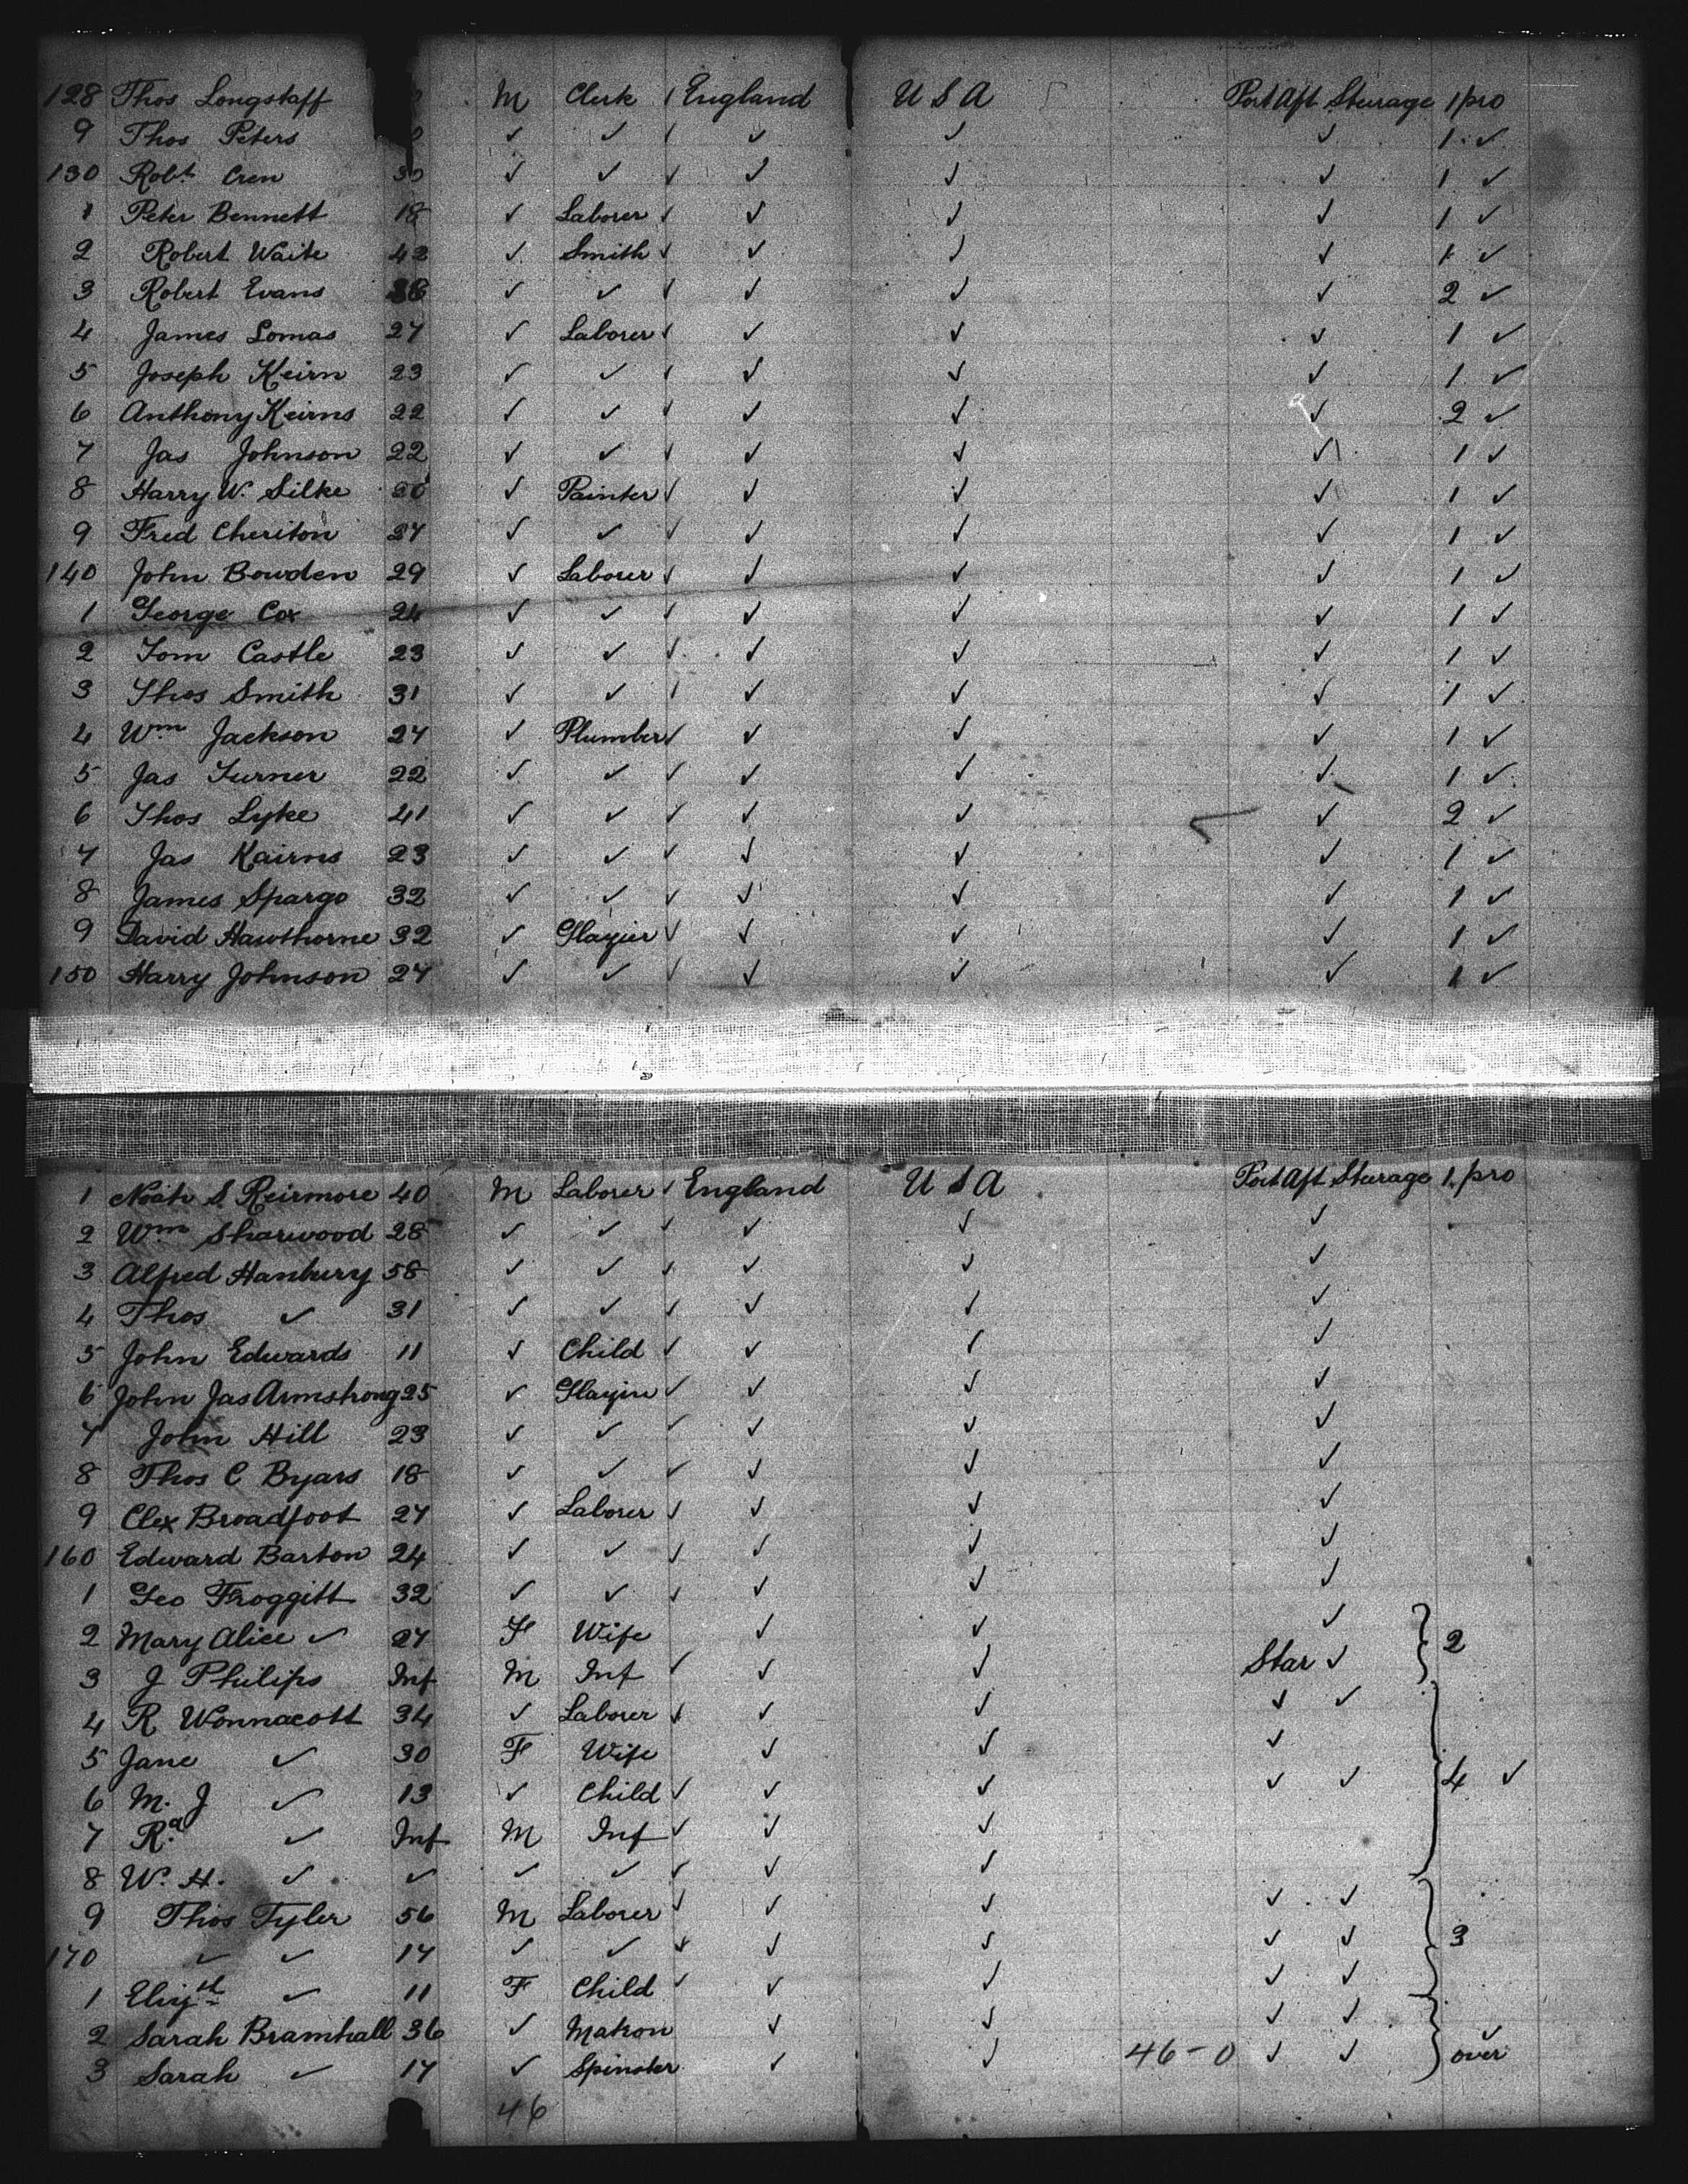 128 Thos Longstaff M Clerk ✓ England U S A Port Aft Steerage 1 pro
9 Thos Peters ✓ ✓ ✓ ✓ ✓ ✓ 1 ✓
130 Robt Cren 30 ✓ ✓ ✓ ✓ ✓ ✓ 1 ✓
1 Peter Bennett 18 ✓ Laborer ✓ ✓ ✓ ✓ 1 ✓
2 Robert Waite 43 ✓ Smith ✓ ✓ ✓ ✓ 1 ✓
3 Robert Evans ✓ ✓ ✓ ✓ ✓ ✓ 2 ✓
4 James Lomas 27 ✓ Laborer ✓ ✓ ✓ ✓ 1 ✓
5 Joseph Keirn 23 ✓ ✓ ✓ ✓ ✓ ✓ 1 ✓
6 Anthony Keirns 22 ✓ ✓ ✓ ✓ ✓ ✓ 2 ✓
7 Jas Johnson 22 ✓ ✓ ✓ ✓ ✓ ✓ 1 ✓
8 Harry W. Silke 20 ✓ Painter ✓ ✓ ✓ ✓ 1 ✓
9 Fred Cheriton 27 ✓ ✓ ✓ ✓ ✓ ✓ 1 ✓
140 John Bowden 29 ✓ Laborer ✓ ✓ ✓ ✓ 1 ✓
1 George Cox 24 ✓ ✓ ✓ ✓ ✓ ✓ 1 ✓
2 Tom Castle 23 ✓ ✓ ✓ ✓ ✓ ✓ 1 ✓
3 Thos Smith 31 ✓ ✓ ✓ ✓ ✓ ✓ 1 ✓
4 Wm Jackson 27 ✓ Plumber ✓ ✓ ✓ ✓ 1 ✓
5 Jas Turner 22 ✓ ✓ ✓ ✓ ✓ ✓ 1 ✓
6 Thos Lyke 41 ✓ ✓ ✓ ✓ ✓ ✓ 2 ✓
7 Jas Kairns 23 ✓ ✓ ✓ ✓ ✓ ✓ 1 ✓
8 James Spargo 32 ✓ ✓ ✓ ✓ ✓ ✓ 1 ✓
9 David Hawthorne 32 ✓ Glazier ✓ ✓ ✓ ✓ 1 ✓
150 Harry Johnson 27 ✓ ✓ ✓ ✓ ✓ ✓ 1 ✓
1 Noah S. Reirmore 40 M Laborer ✓ England U S A Port Aft Steerage 1 pro
2 Wm Sharwood 28 ✓ ✓ ✓ ✓ ✓ ✓
3 Alfred Hanbury 58 ✓ ✓ ✓ ✓ ✓ ✓
4 Thos ✓ 31 ✓ ✓ ✓ ✓ ✓ ✓
5 John Edwards 11 ✓ Child ✓ ✓ ✓ ✓
6 John Jas Armstrong 25 ✓ Glazier ✓ ✓ ✓ ✓
7 John Hill 23 ✓ ✓ ✓ ✓ ✓ ✓
8 Thos C Byars 18 ✓ ✓ ✓ ✓ ✓ ✓
9 Clex Broadfoot 27 ✓ Laborer ✓ ✓ ✓ ✓
160 Edward Barton 24 ✓ ✓ ✓ ✓ ✓ ✓
1 Geo Froggitt 32 ✓ ✓ ✓ ✓ ✓ ✓
2 Mary Alice ✓ 27 F Wife ✓ ✓ ✓ 2
3 J Philips Inf M Inf ✓ ✓ ✓ Star ✓
4 R Wonnacott 34 ✓ Laborer ✓ ✓ ✓ ✓ ✓
5 Jane ✓ 30 F Wife ✓ ✓ ✓
6 M. J ✓ 13 ✓ Child ✓ ✓ ✓ ✓ ✓ 4 ✓
7 Rd ✓ Inf M Inf ✓ ✓ ✓
8 W. H. ✓ ✓ ✓ ✓ ✓ ✓ ✓
9 Thos Tyler 56 M Laborer ✓ ✓ ✓ ✓ ✓
170 ✓ ✓ 17 ✓ ✓ ✓ ✓ ✓ ✓ ✓ 3
1 Elizth ✓ 11 F Child ✓ ✓ ✓ ✓ ✓
2 Sarah Bramhall 36 ✓ Matron ✓ ✓ ✓ ✓ ✓
3 Sarah ✓ 17 ✓ Spinster ✓ ✓ 46-0 ✓ ✓ over
46